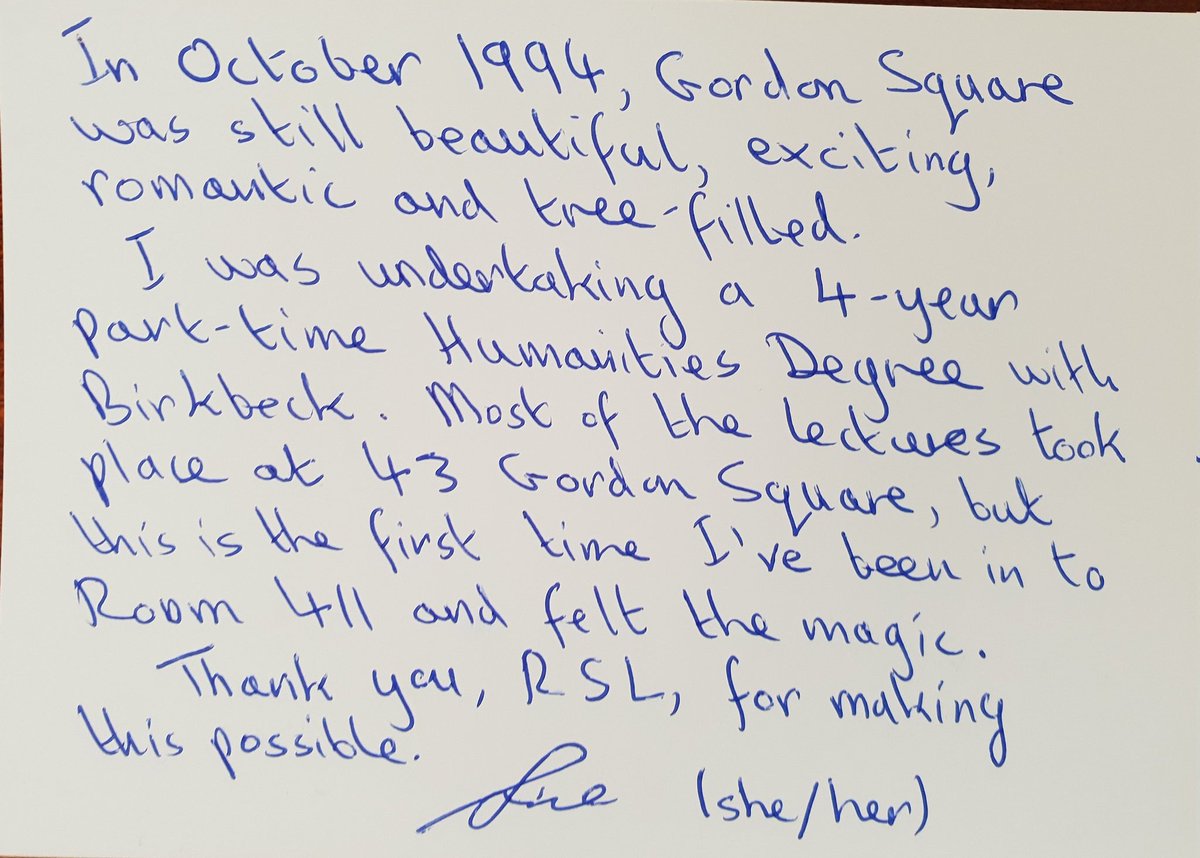 In October 1994, Gordon Square
was still beautiful, exciting,
romantic and tree-filled.
I was undertaking a 4-year
part-time Humanities Degree with
Birkbeck. Most of the lectures took
place at 43 Gordon Square, but
this is the first time I've been in to
Room 411 and felt the magic.
Thank you, RSL, for making
this possible.
(she/her)